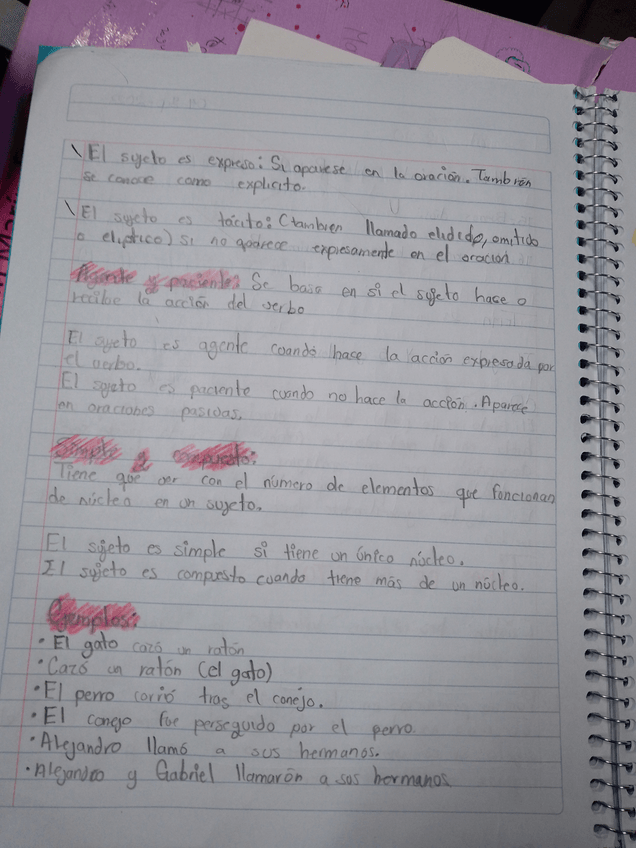 \ El sujeto es expreso: Si aparese en la oración. También
se conoce como explicito.
\ El sujeto es tácito: (tambien llamado elidido, omitido
o eliptico) si no aparece expresamente en el oracion
Agente y paciente: Se basa en si el sujeto hace o
recibe la acción del verbo
El sujeto es agente cuando hace la acción expresada por
el verbo.
El sujeto es paciente cuando no hace la acción. Aparece
en oraciones pasivas.
Simple y compuesto:
Tiene que ver con el número de elementos que funcionan
de núcleo en un sujeto.
El sujeto es simple si tiene un único núcleo.
El sujeto es compuesto cuando tiene más de un núcleo.
Ejemplos:
• El gato cazó un ratón
• Cazó un ratón (el gato)
• El perro corrió tras el conejo.
• El conejo fue perseguido por el perro.
• Alejandro llamó a sus hermanos.
• Alejandro y Gabriel llamarón a sus hermanos